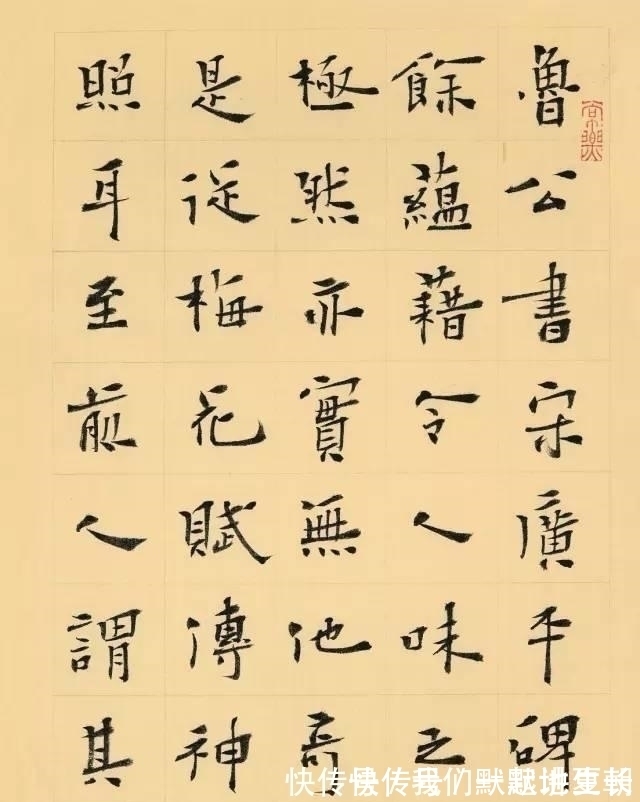 魯公書宋廣平碑
餘蘊藉令人味之
極然亦實無他奇
是從梅花賦傳神
照耳至前人謂其
快传